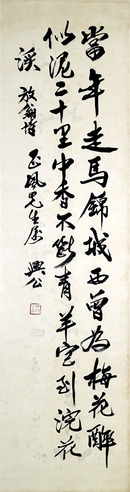 當年走馬錦城西曾為梅花醉
似泥二十里中香不斷青羊宮到浣花
溪 放翁詩 風先生屬 興公